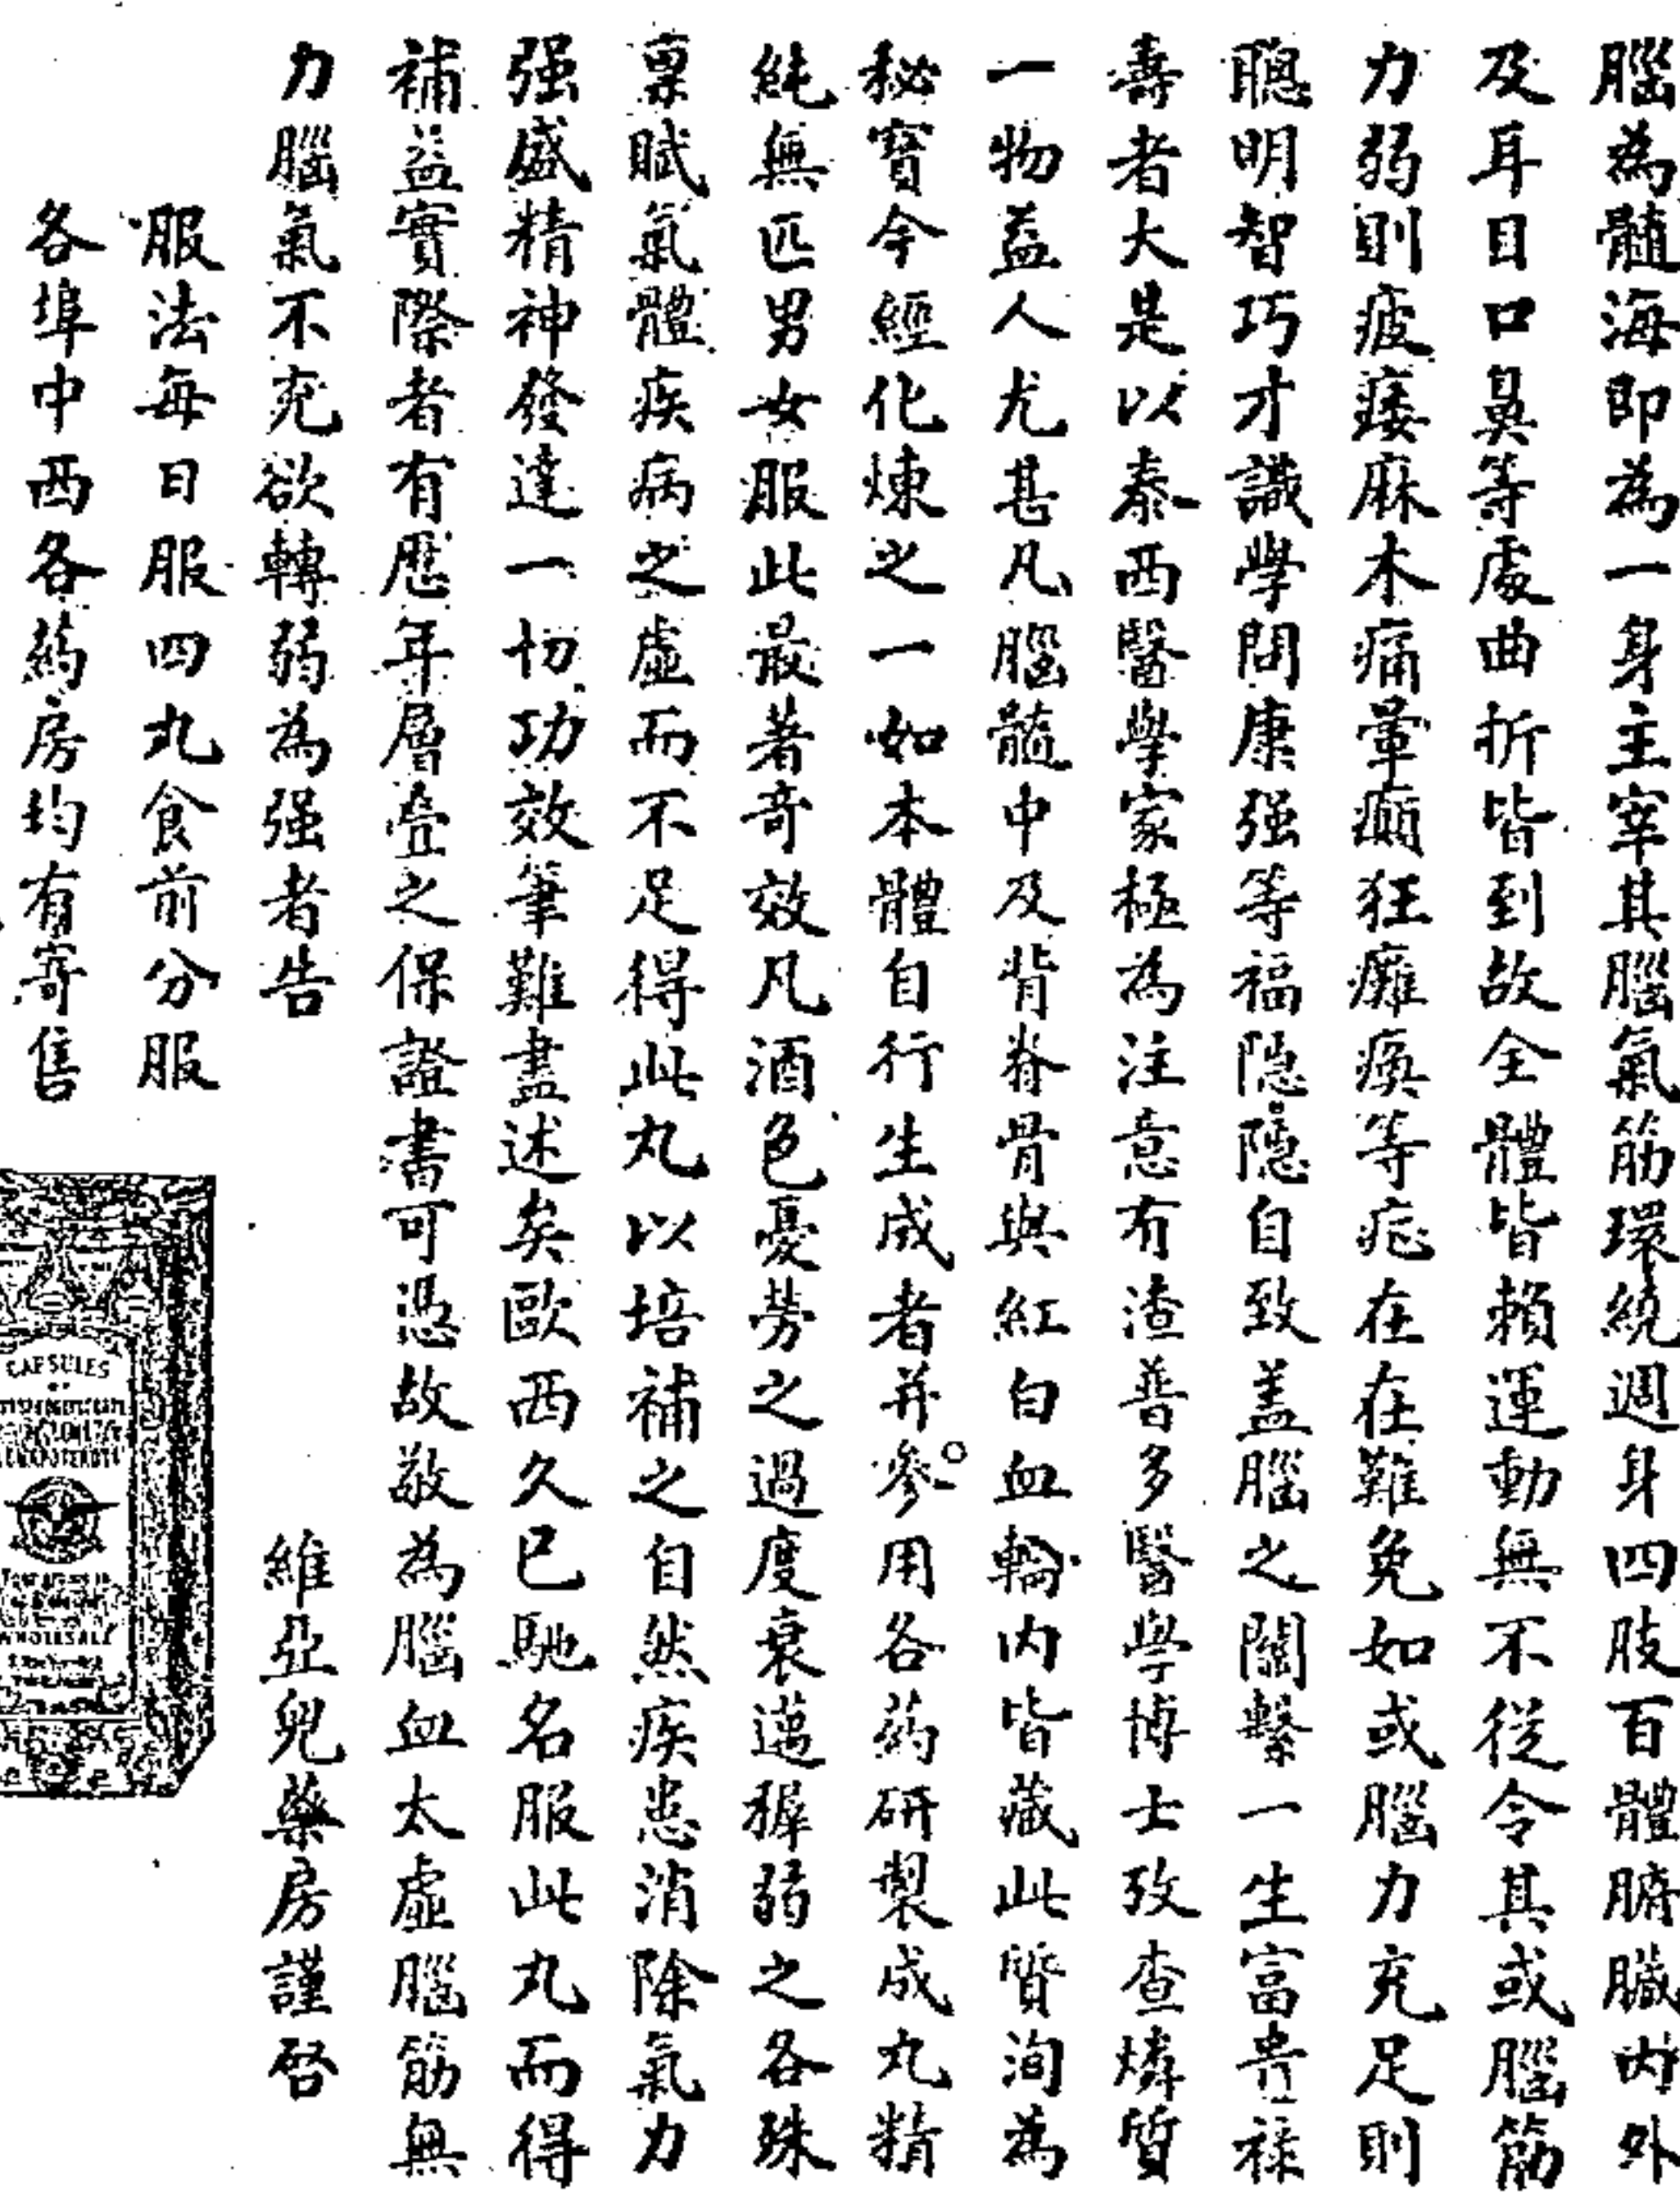 腦為髓海即為一身主宰其腦氣筋環繞週身四肢百體臍臟內外
及耳目口鼻等處曲折皆到故全體皆賴運動無不從令其或腦筋
力弱則疲痿麻木痛暈癲狂癱瘓等症在在難免如或腦力充足則
聰明智巧才識學問康强等福隱隱自致盖腦之關繫一生富貴祿
壽者大是以泰西醫學家極為注意有渣普多醫學博士攷查燐質
一物益人尤甚凡腦髓中及背脊骨與紅白血輪內皆藏此質洵為
秘寶今經化煉之一如本體自行生成者并參用各葯研製成丸精
純無匹男女服此最著奇效凡酒色憂勞之過度衰邁穉弱之各殊
禀賦氣體疾病之虛而不足得此丸以培補之自然疾患消除氣力
强盛精神發達一切功效筆難盡述矣歐西久已馳名服此丸而得
補益實際者有歷年層疊之保證書可憑故敬為腦血太虛腦筋無
力腦氣不充欲轉弱為强者告
維亞兒藥房謹啓
服法每日服四丸食前分服
各埠中西各葯房均有寄售
CAPSULES
WHOLESALE